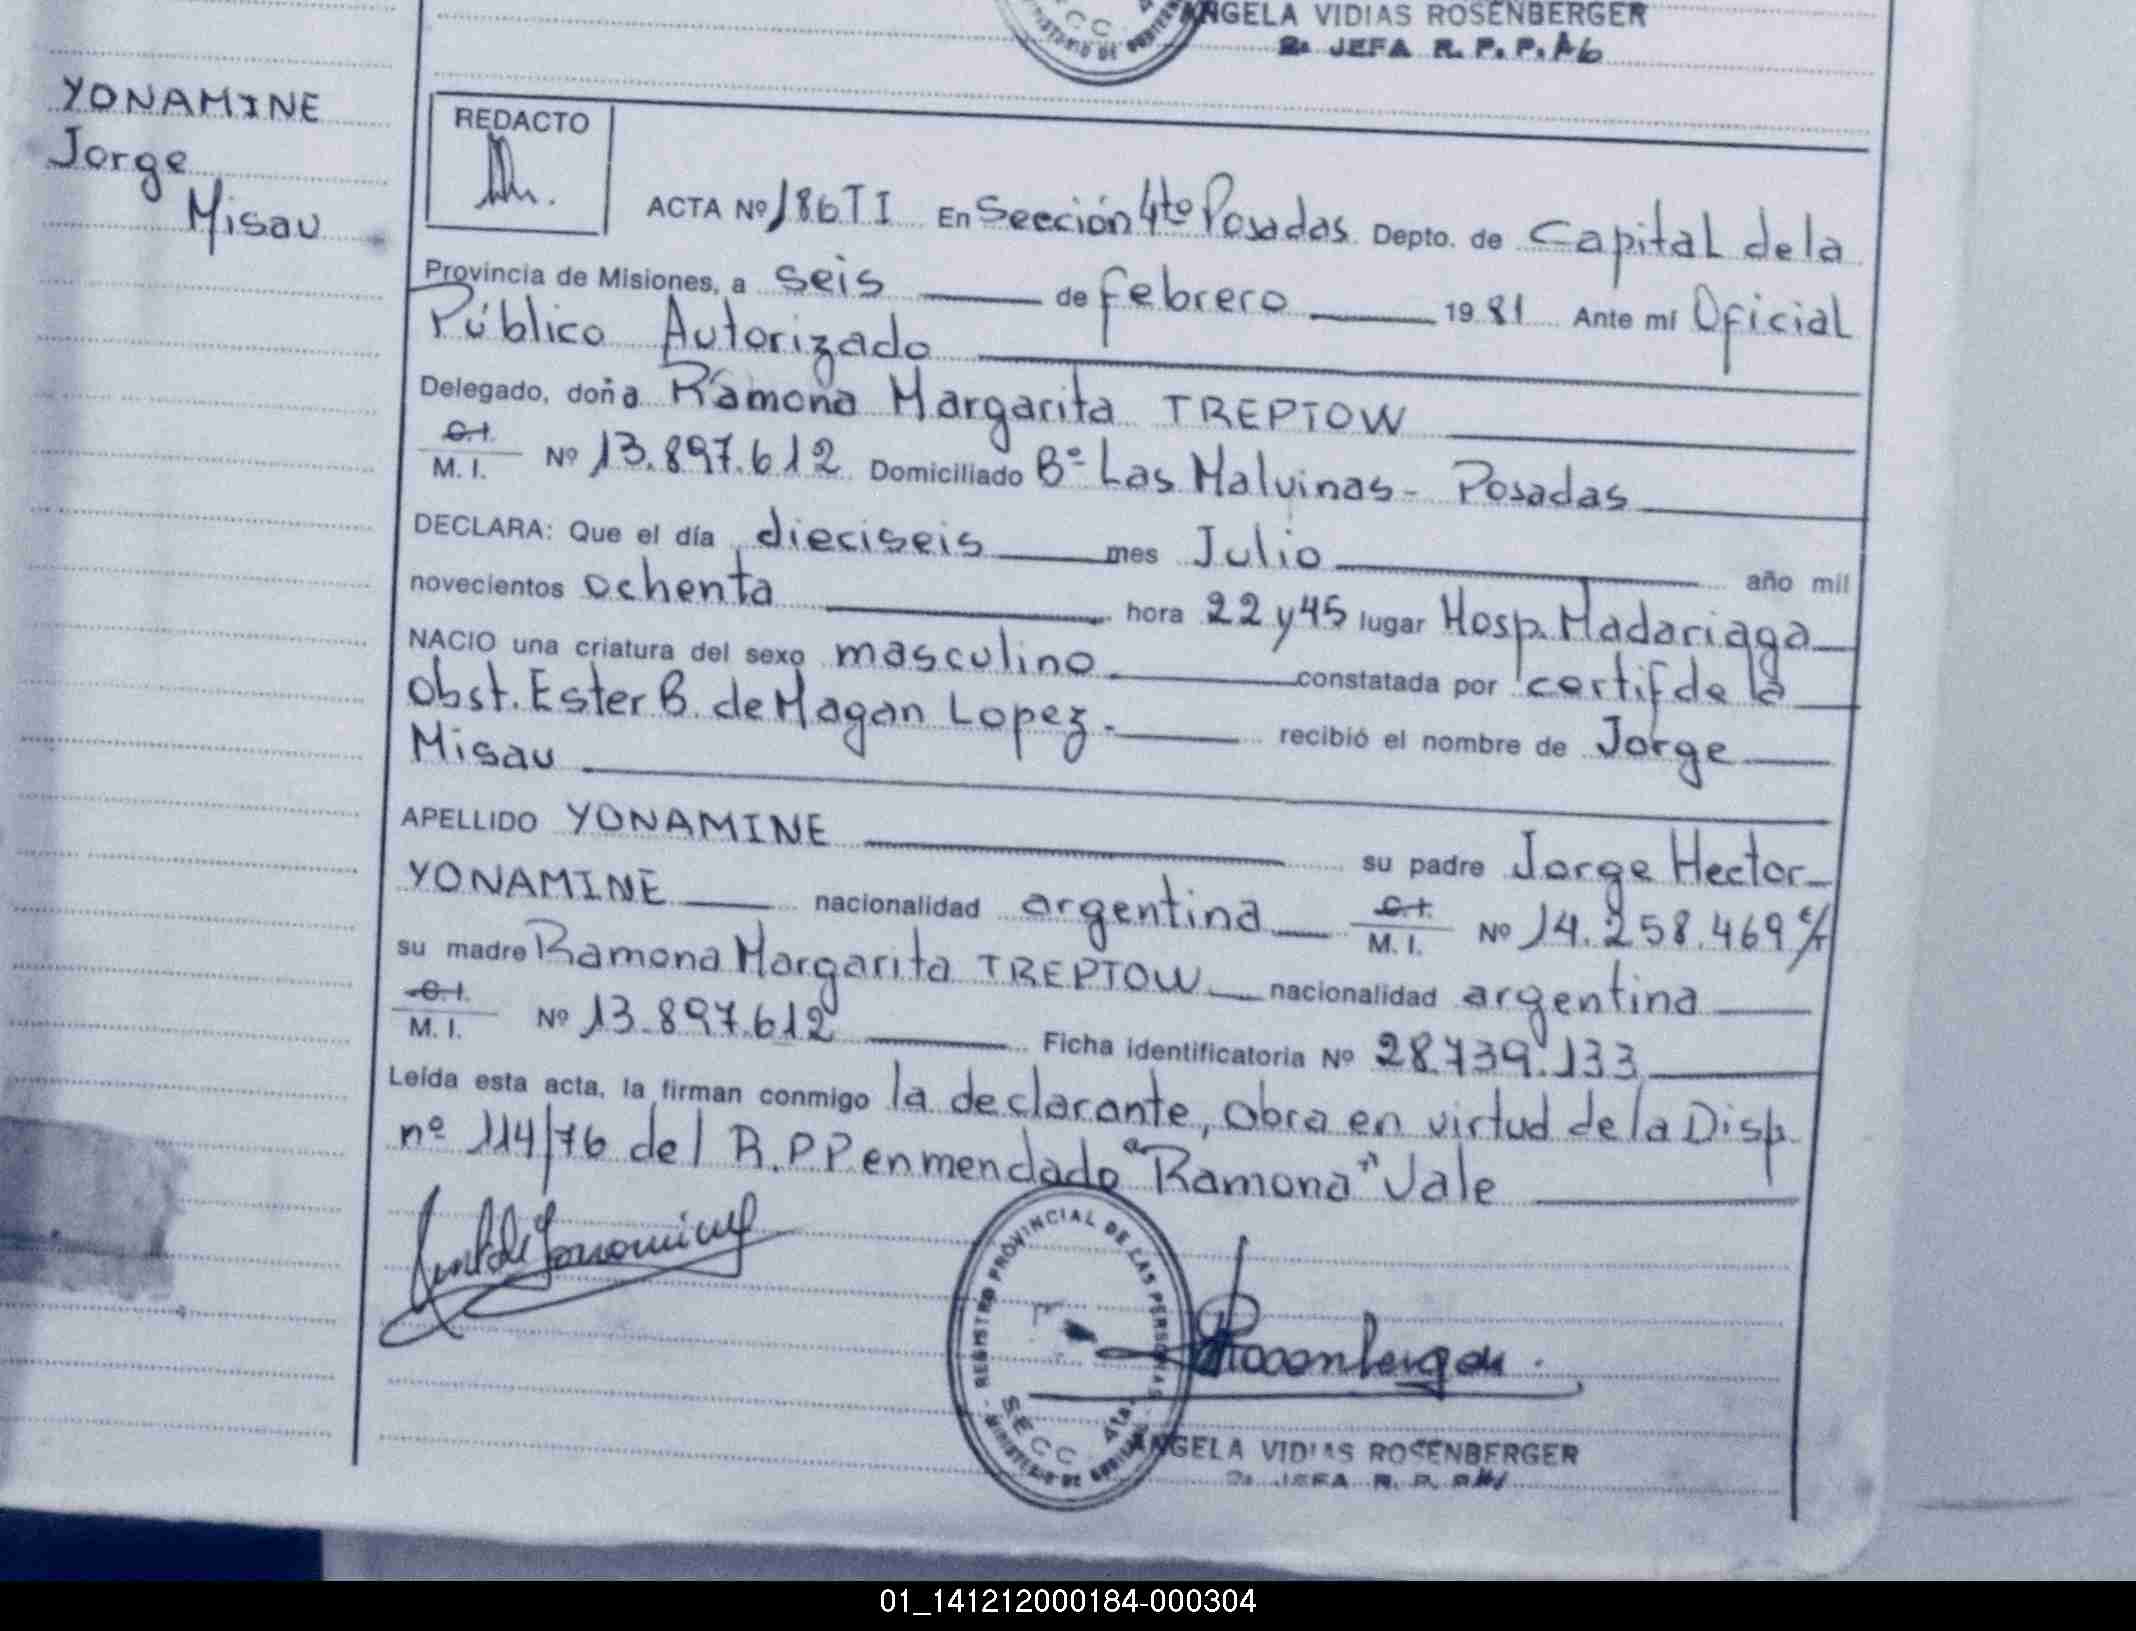 ANGELA VIDIAS ROSENBERGER
2a JEFA R. P. P.
YONAMINE
Jorge
Misau
REDACTO
ACTA Nº 186TI En Sección 4ta Posadas Depto. de Capital de la
Provincia de Misiones, a seis de febrero 1981 Ante mí Oficial
Público Autorizado
Delegado, doña Ramona Margarita TREPTOW
C.I.
M. I. Nº 13.897.612 Domiciliado Bº Las Malvinas - Posadas
DECLARA: Que el día dieciseis mes Julio año mil
novecientos ochenta hora 22 y 45 lugar Hosp. Madariaga
NACIO una criatura del sexo masculino constatada por certif de la
obst. Ester B. de Magan Lopez.- recibió el nombre de Jorge
Misau
APELLIDO YONAMINE su padre Jorge Hector
YONAMINE nacionalidad argentina C.I. M. I. Nº 14.258.469
su madre Ramona Margarita TREPTOW nacionalidad argentina
C.I.
M. I. Nº 13.897.612 Ficha identificatoria Nº 28.739.133
Leída esta acta, la firman conmigo la declarante, obra en virtud de la Disp.
nº 114/76 del R.P.P enmendado "Ramona" Vale
REGISTRO PROVINCIAL DE LAS PERSONAS
SECC 4ta.
MINISTERIO DE GOBIERNO
Rosenberger
ANGELA VIDIAS ROSENBERGER
2a JEFA R. P.
01_141212000184-000304